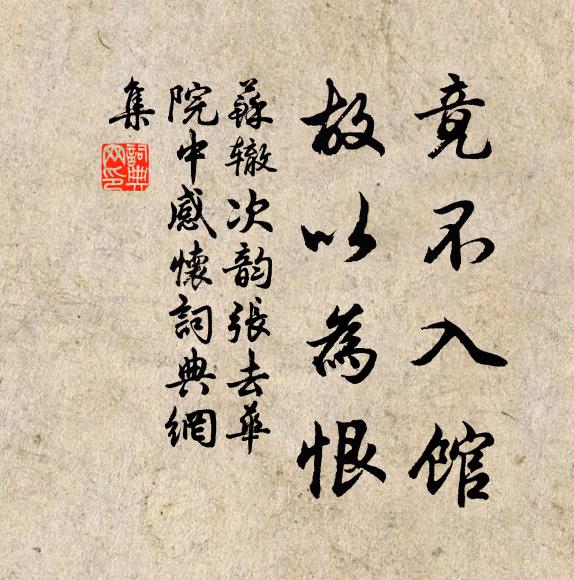 竟不入館
故以為恨
蘇轍次韵張去華
院中感懷詞典網
集
詞典網印